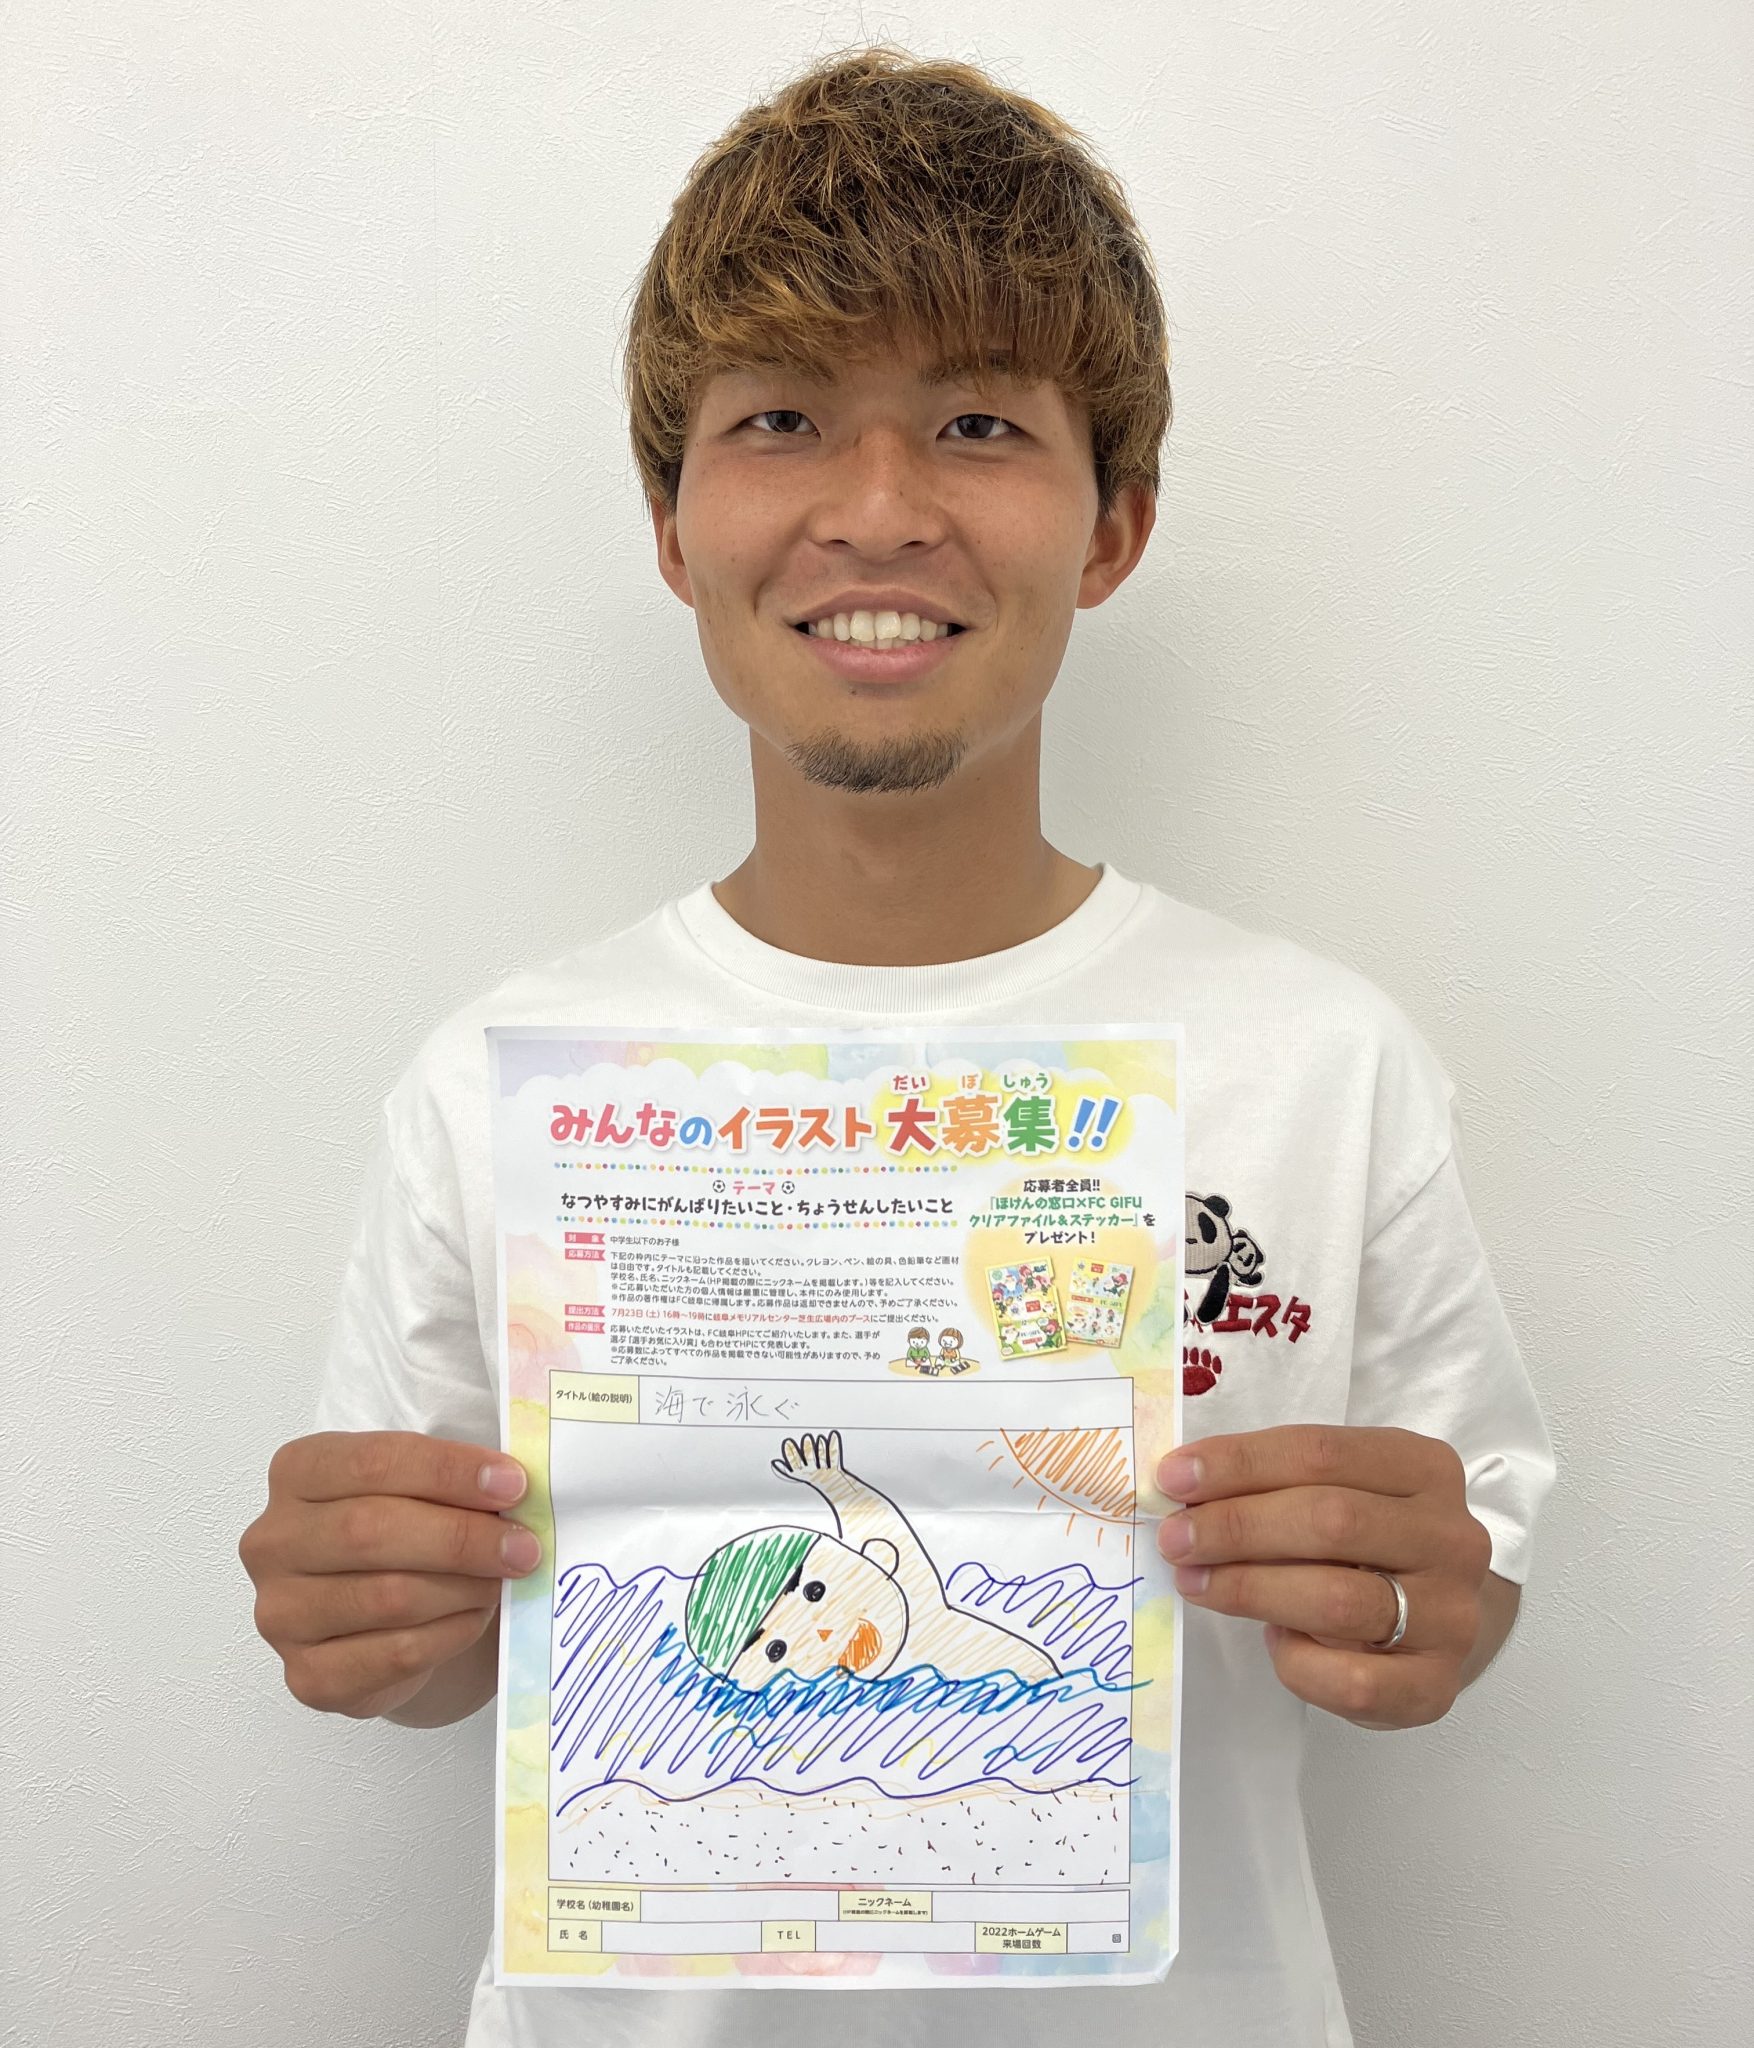 だい ぼ しゅう
みんなのイラスト大募集!!
テーマ
なつやすみにがんばりたいこと・ちょうせんしたいこと
応募者全員!!
『ほけんの窓口×FC GIFU
クリアファイル&ステッカー』を
プレゼント!
対 象 中学生以下のお子様
応募方法 下記の枠内にテーマに沿った作品を描いてください。クレヨン、ペン、絵の具、色鉛筆など画材
は自由です。タイトルも記載してください。
学校名、氏名、ニックネーム(HP掲載の際にニックネームを掲載します。)等を記入してください。
※ご応募いただいた方の個人情報は厳重に管理し、本件にのみ使用します。
※作品の著作権はFC岐阜に帰属します。応募作品は返却できませんので、予めご了承ください。
提出方法 7月23日(土)16時〜19時に岐阜メモリアルセンター芝生広場内のブースにご提出ください。
作品の展示 応募いただいたイラストは、FC岐阜HPにてご紹介いたします。また、選手が
選ぶ「選手お気に入り賞」も合わせてHPにて発表します。
※応募数によってすべての作品を掲載できない可能性がありますので、予め
ご了承ください。
タイトル(絵の説明) 海で泳ぐ
学校名(幼稚園名) ニックネーム
(HP掲載の際にニックネームを掲載します)
氏 名 TEL 2022ホームゲーム
来場回数 回
エスタ